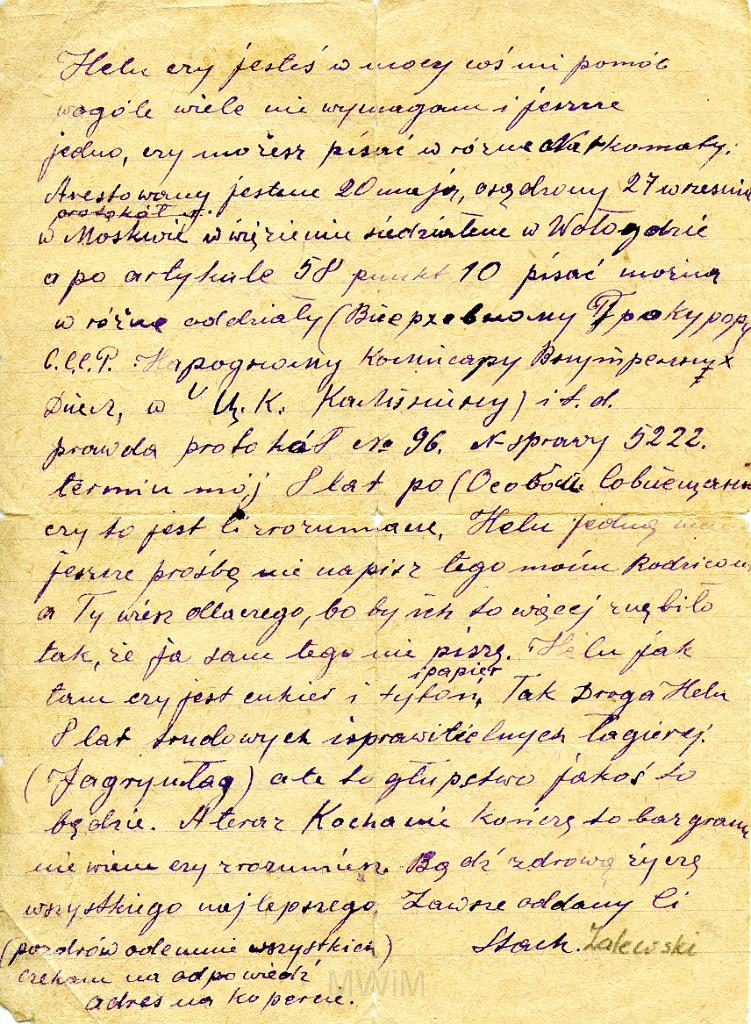 Helu czy jesteś w mocy coś mi pomóc
wogóle wiele nie wymagam i jeszcze
jedno, czy możesz pisać w różne Narkomaty.
Arestowany jestem 20 maja, osądzony 27 wrzesnia
protokół
w Moskwie w więzieniu siedziałem w Wołogdzie
a po artykule 58 punkt 10 pisać można
w różne oddziały (Прокурору
С.С.С.Р. Народному Комисару Внутренных
Дел, w Ц.К. Kalininny) i t.d.
prawda protokół No 96. N sprawy 5222.
termin mój 8 lat po (Особом Совещании
czy to jest Ci zrozumiane, Helu jedną mam
jeszcze prośbę nie napisz tego moim Rodzicom
a Ty wiesz dlaczego, bo by ich to więcej znębiło
tak, że ja sam tego nie piszę. Helu jak
i papier
tam czy jest cukier i tytoń, Tak Droga Helu
8 lat trudowych isprawitielnych łagierej.
(Jagrynłag) ale to głupstwo jakoś to
będzie. A teraz Kochanie kończę to bazgranie
nie wiem czy zrozumiesz. Bądź zdrową życzę
wszystkiego najlepszego, Zawsze oddany Ci
(pozdrów odemnie wszystkich) Stach. Zalewski
czekam na odpowiedź
adres na kopercie.
MWiM